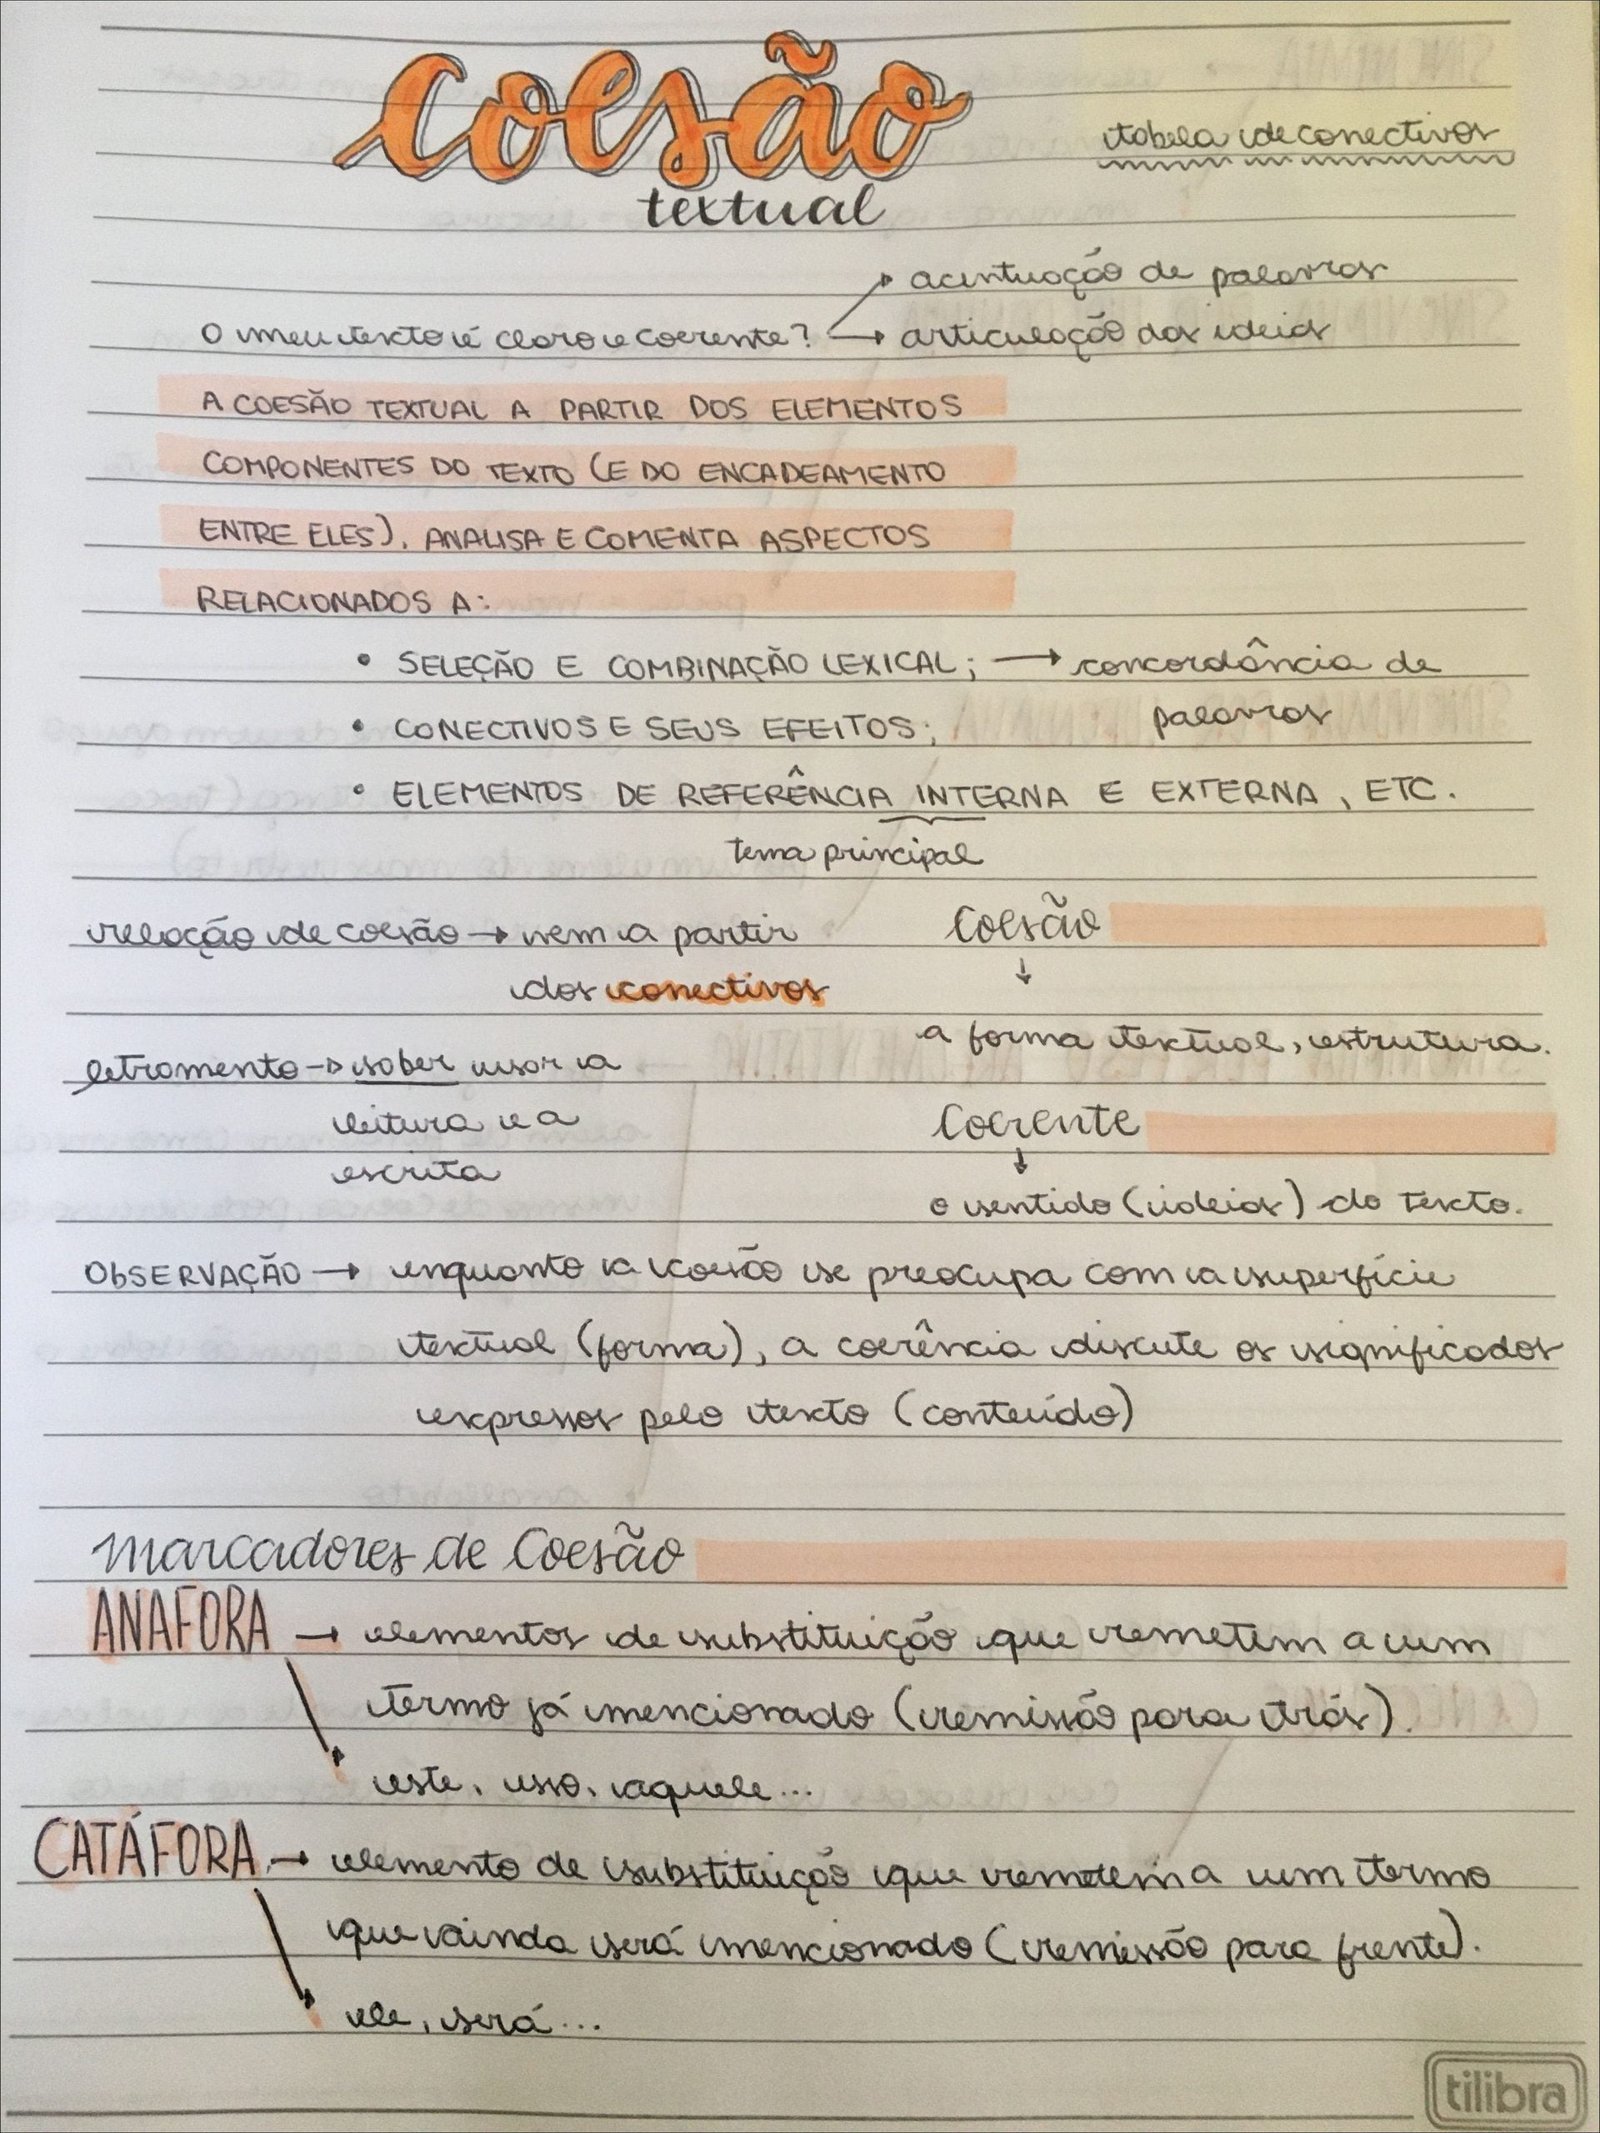 coesão
textual
tabela de conectivos
acentuação de palavras
O meu texto é claro e coerente? → articulação das ideias
A COESÃO TEXTUAL A PARTIR DOS ELEMENTOS
COMPONENTES DO TEXTO (E DO ENCADEAMENTO
ENTRE ELES), ANALISA E COMENTA ASPECTOS
RELACIONADOS A:
• SELEÇÃO E COMBINAÇÃO LEXICAL; → concordância de
palavras
• CONECTIVOS E SEUS EFEITOS;
• ELEMENTOS DE REFERÊNCIA INTERNA E EXTERNA, ETC.
tema principal
relação de coesão → vem a partir
dos conectivos
letramento → saber usar a
leitura e a
escrita
Coesão
↓
a forma textual, estrutura.
Coerente
↓
o sentido (ideias) do texto.
OBSERVAÇÃO → enquanto a coesão se preocupa com a superfície
textual (forma), a coerência discute os significados
expressos pelo texto (conteúdo)
marcadores de Coesão
ANAFORA → elementos de substituição que remetem a um
termo já mencionado (remissão para trás).
este, isso, aquele...
CATÁFORA → elemento de substituição que remetem a um termo
que ainda será mencionado (remissão para frente).
ele, será...
tilibra